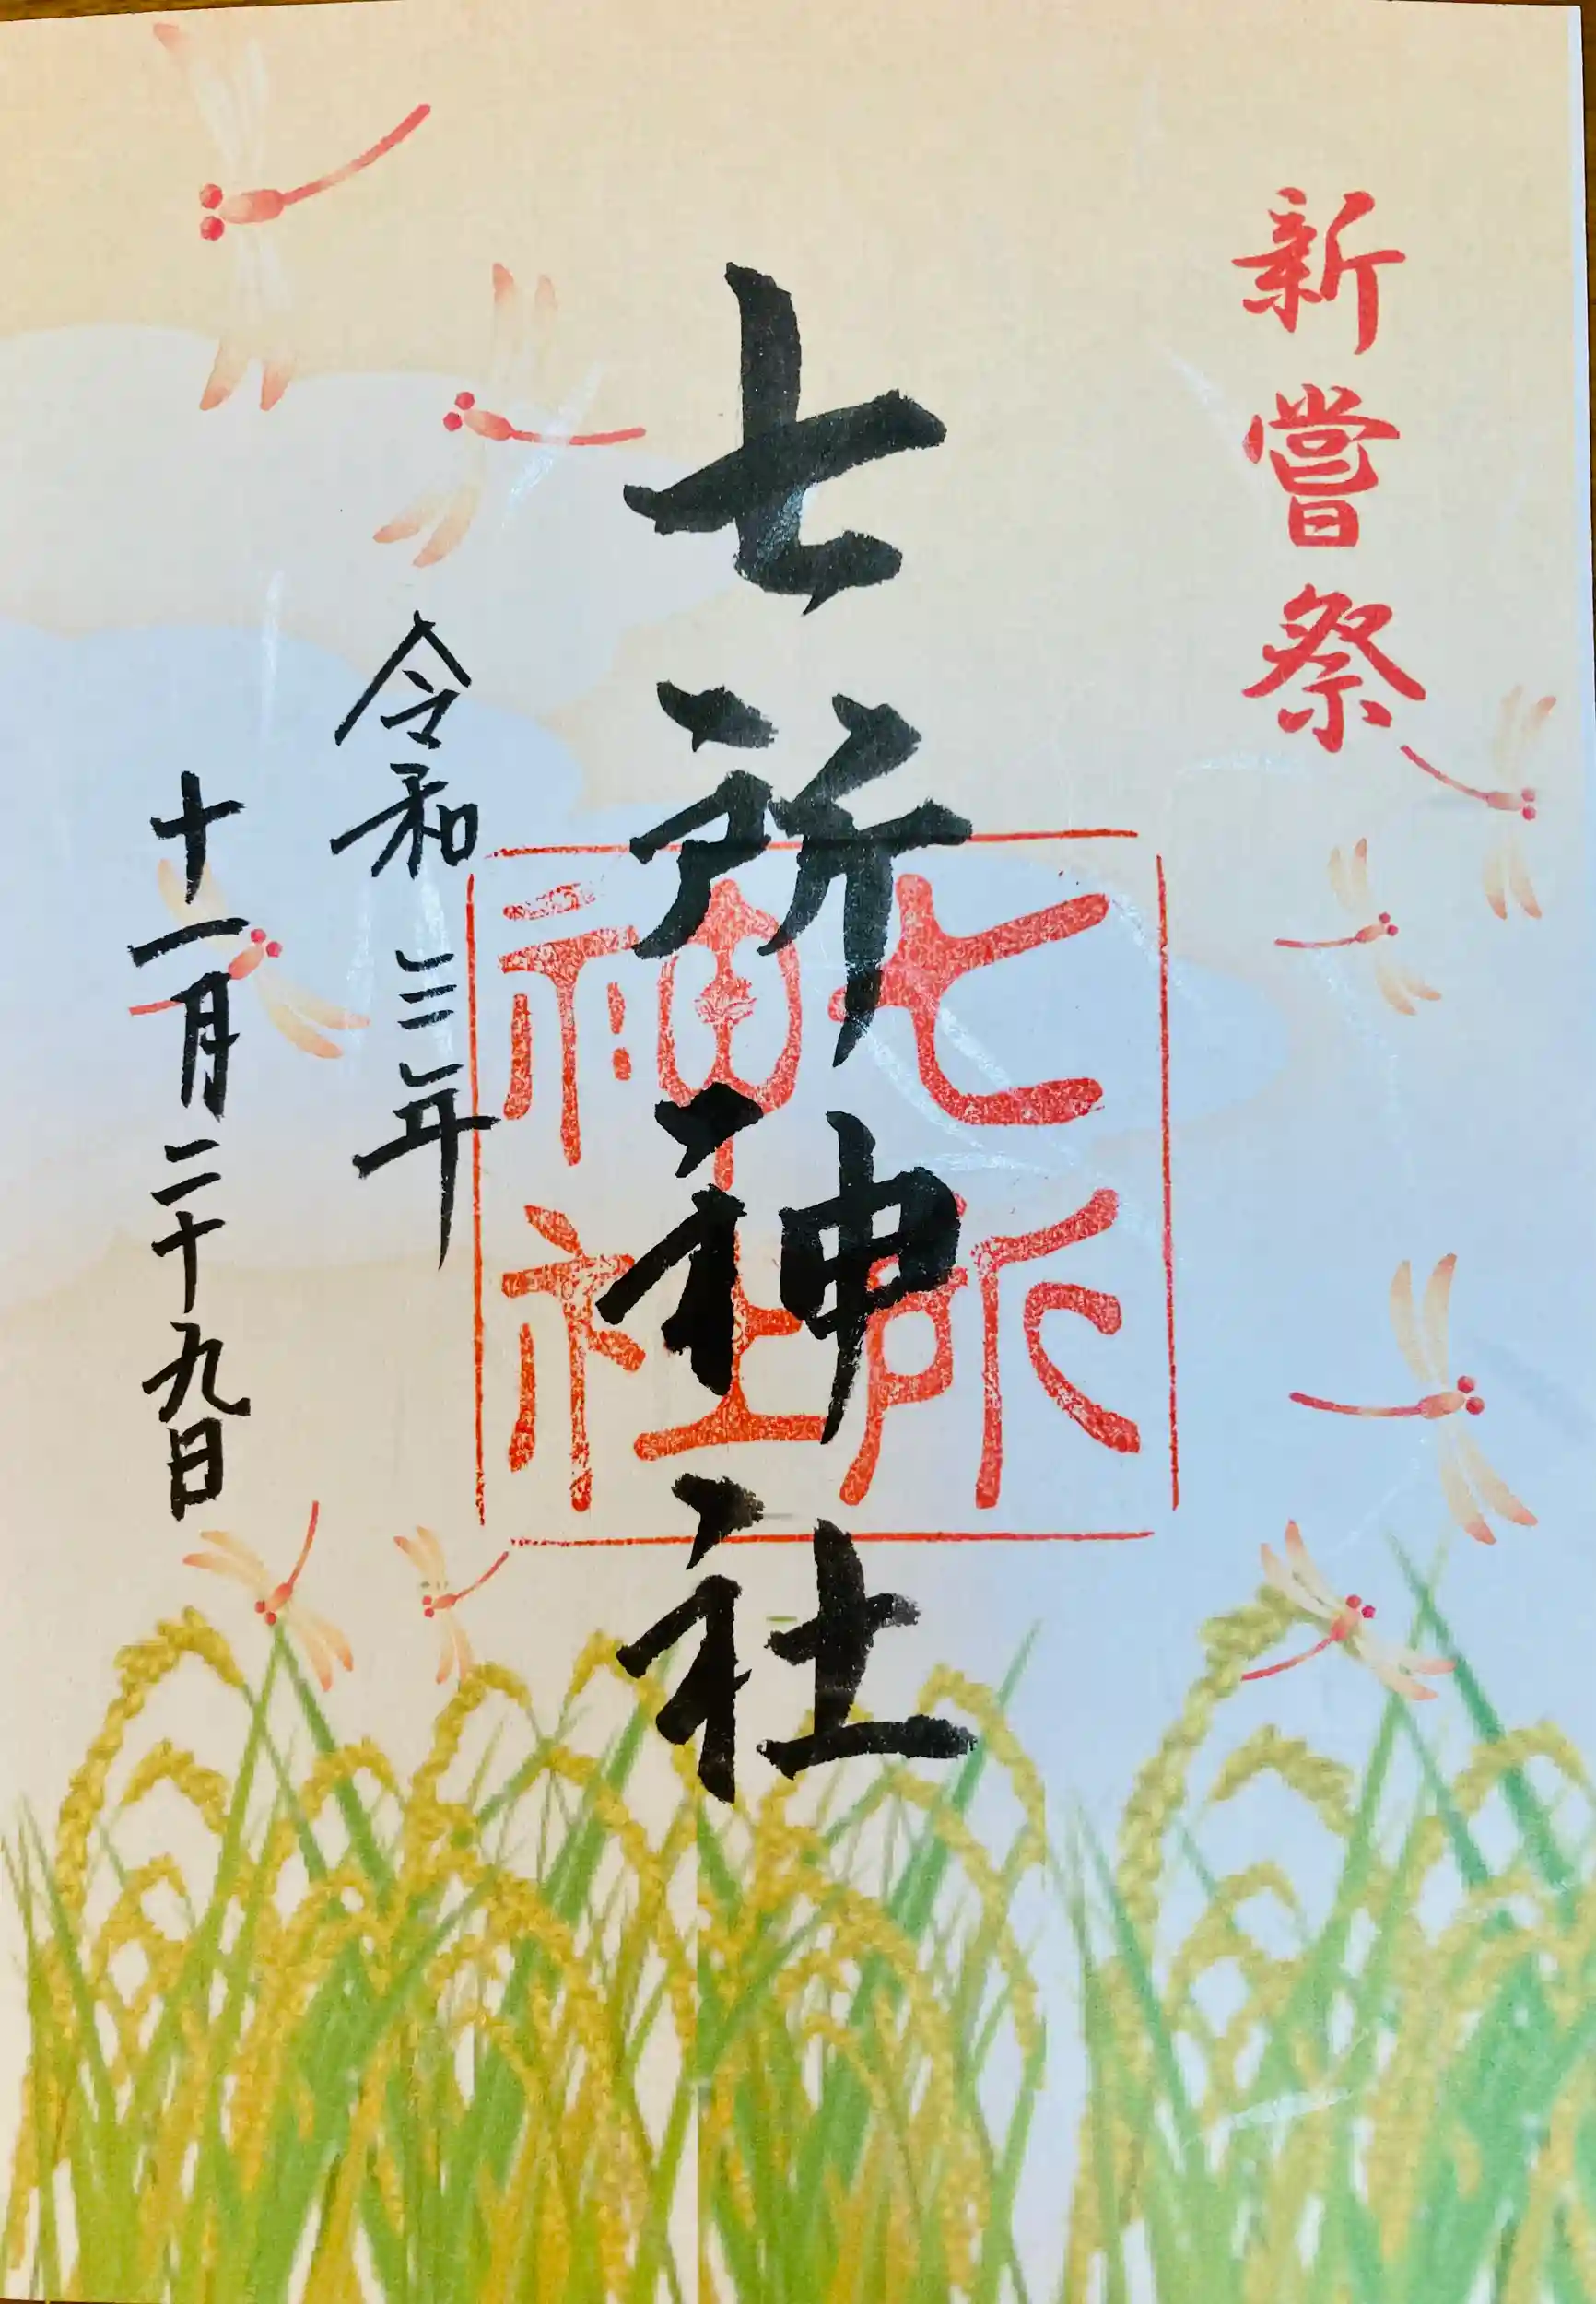 新嘗祭
七所神社
七所
神社
令和三年
十一月二十九日